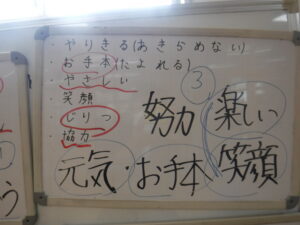 ・やりきる(あきらめない)
・お手本(たよれる)
・やさしい
・笑顔
・じりつ
・協力
③
努力 楽しい
元気・お手本 笑顔
う